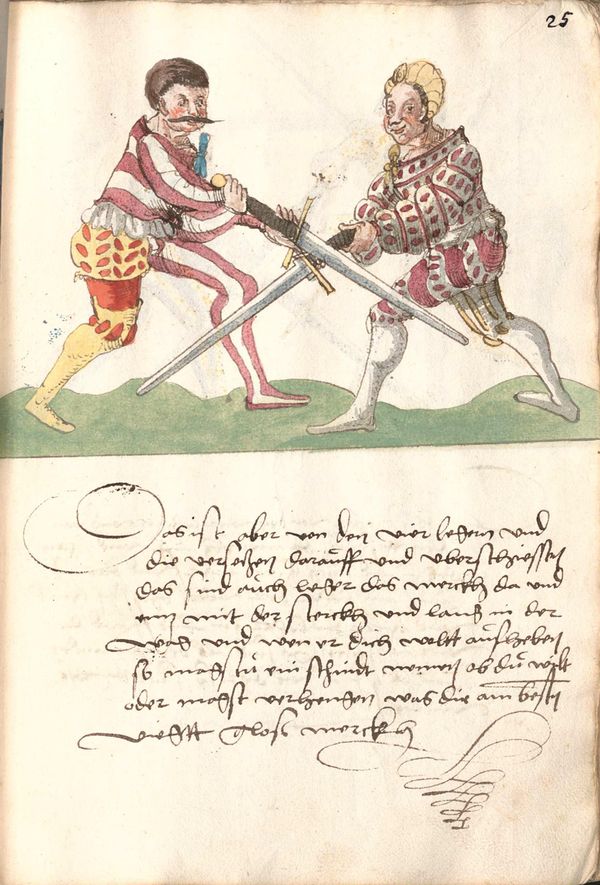 25
Das ist aber von den vier legern und
die versetzen darauff und uberschiessen
das sind auch leger das merckh da und
mit der sterckh und in der
und wen er dich woltt auffheben
so magstu ein schnidt nemen ob du wilt
oder magst verhengen was die am besten
gloss merckh